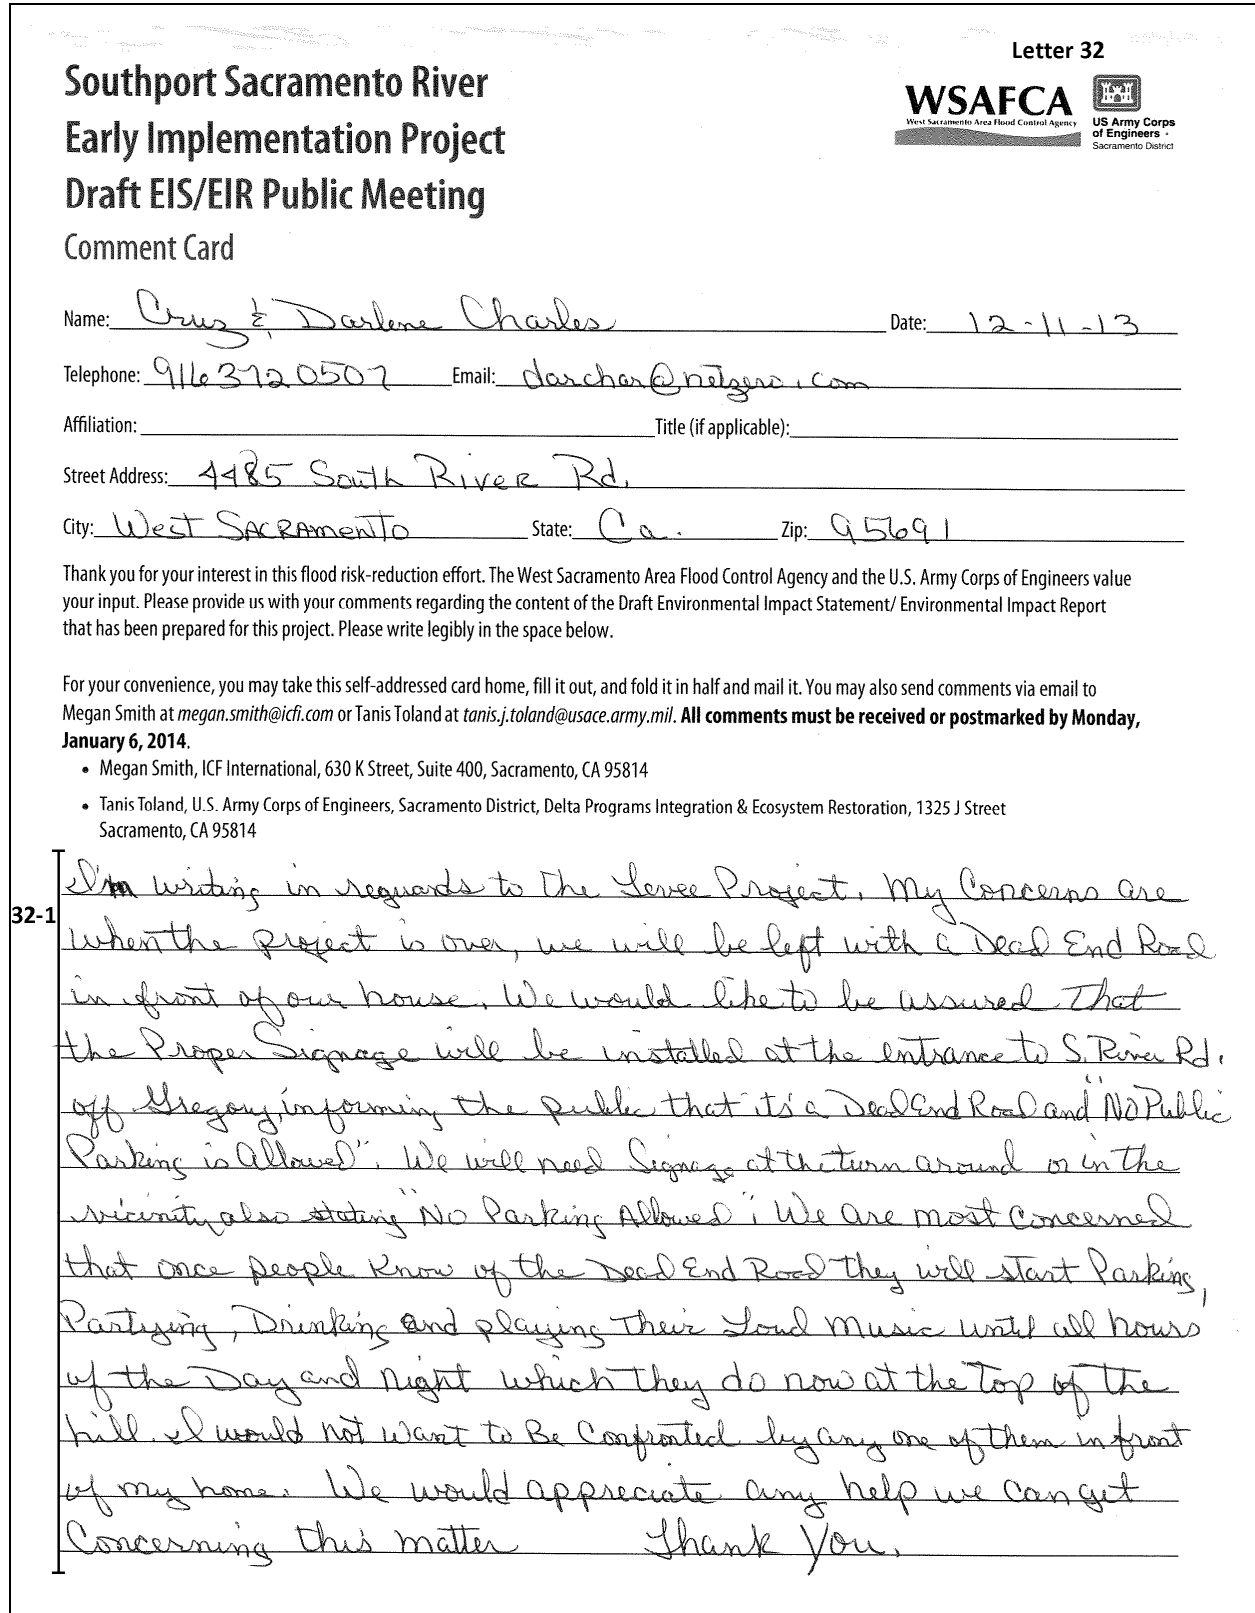 Letter 32
Southport Sacramento River
Early Implementation Project
Draft EIS/EIR Public Meeting
Comment Card
WSAFCA
West Sacramento Area Flood Control Agency
US Army Corps
of Engineers
Sacramento District
Name: Cruz & Darlene Charles Date: 12-11-13
Telephone: 916 372 0507 Email: darchar@netzero.com
Affiliation: Title (if applicable):
Street Address: 4485 South River Rd.
City: West Sacramento State: Ca. Zip: 95691
Thank you for your interest in this flood risk-reduction effort. The West Sacramento Area Flood Control Agency and the U.S. Army Corps of Engineers value
your input. Please provide us with your comments regarding the content of the Draft Environmental Impact Statement/ Environmental Impact Report
that has been prepared for this project. Please write legibly in the space below.
For your convenience, you may take this self-addressed card home, fill it out, and fold it in half and mail it. You may also send comments via email to
Megan Smith at megan.smith@icfi.com or Tanis Toland at tanis.j.toland@usace.army.mil. All comments must be received or postmarked by Monday,
January 6, 2014.
• Megan Smith, ICF International, 630 K Street, Suite 400, Sacramento, CA 95814
• Tanis Toland, U.S. Army Corps of Engineers, Sacramento District, Delta Programs Integration & Ecosystem Restoration, 1325 J Street
Sacramento, CA 95814
32-1
I'm writing in reguards to the Levee Project. My Concerns are
when the project is over, we will be left with a Dead End Road
in front of our house. We would like to be assured That
the Proper Signage will be installed at the entrance to S. River Rd.
off Gregory, informing the public that it's a Dead End Road and "No Public
Parking is Allowed". We will need Signage at the turn around or in the
vicinity also stating "No Parking Allowed". We are most Concerned
that once people know of the Dead End Road they will start Parking,
Partying, Drinking and playing their Loud music until all hours
of the Day and night which they do now at the Top of the
hill. I would not want to Be Confronted by any one of them in front
of my home. We would appreciate any help we can get
Concerning this matter Thank You.